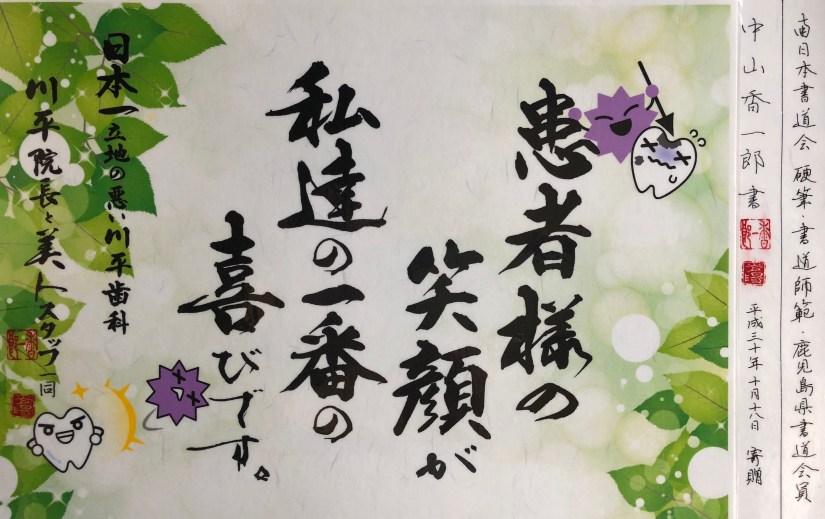 南日本書道会 硬筆・書道師範・鹿児島県書道会員
中山香一郎書 平成三十年十月十八日 寄贈
患者様の
笑顔が
私達の一番の
喜びです。
日本一立地の悪い川平歯科
川平院長と美人スタッフ一同